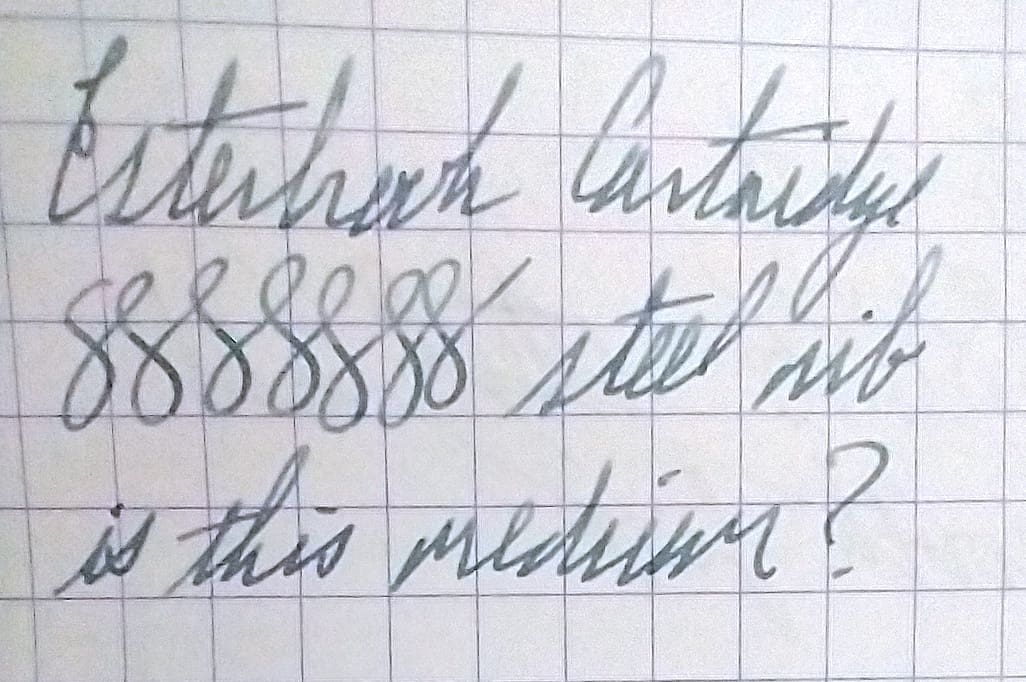 Esterbrook Cartridge
8888888 steel nib
is this medium?